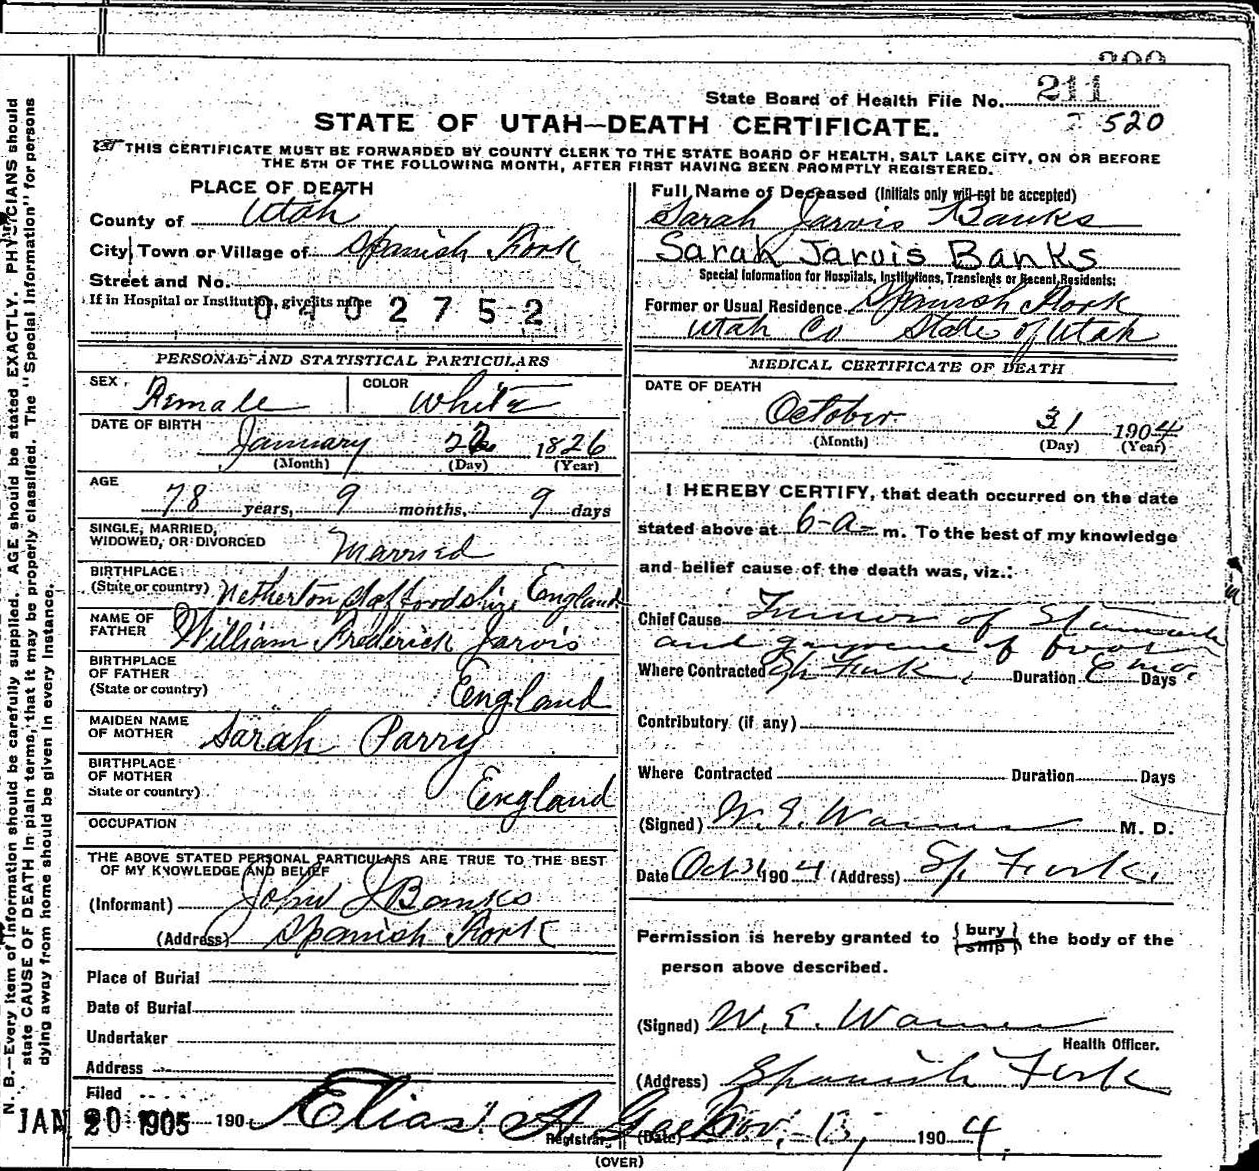 State Board of Health File No. 211
520
STATE OF UTAH—DEATH CERTIFICATE.
THIS CERTIFICATE MUST BE FORWARDED BY COUNTY CLERK TO THE STATE BOARD OF HEALTH, SALT LAKE CITY, ON OR BEFORE
THE 5TH OF THE FOLLOWING MONTH, AFTER FIRST HAVING BEEN PROMPTLY REGISTERED.
PLACE OF DEATH
County of Utah
City, Town or Village of Spanish Fork
Street and No.
If in Hospital or Institution, give its name
0402752
Full Name of Deceased (Initials only will not be accepted)
Sarah Jarvis Banks
Sarah Jarvis Banks
Special Information for Hospitals, Institutions, Transients or Recent Residents:
Former or Usual Residence Spanish Fork
Utah Co State of Utah
PERSONAL AND STATISTICAL PARTICULARS
SEX Female COLOR White
DATE OF BIRTH
January 22 1826
(Month) (Day) (Year)
AGE
78 years, 9 months, 9 days
SINGLE, MARRIED,
WIDOWED, OR DIVORCED Married
BIRTHPLACE
(State or country) Netherton Staffordshire England
NAME OF
FATHER William Frederick Jarvis
BIRTHPLACE
OF FATHER
(State or country) England
MAIDEN NAME
OF MOTHER Sarah Parry
BIRTHPLACE
OF MOTHER
State or country) England
OCCUPATION
THE ABOVE STATED PERSONAL PARTICULARS ARE TRUE TO THE BEST
OF MY KNOWLEDGE AND BELIEF
(Informant) John J Banks
(Address) Spanish Fork
Place of Burial
Date of Burial
Undertaker
Address
Filed
JAN 20 1905 190 Elias A Gee
Registrar
MEDICAL CERTIFICATE OF DEATH
DATE OF DEATH
October 31 1904
(Month) (Day) (Year)
I HEREBY CERTIFY, that death occurred on the date
stated above at 6-a- m. To the best of my knowledge
and belief cause of the death was, viz.:
Chief Cause Tumor of Stomach
and gangrene of foot
Where Contracted Sp Fork, Duration 6 mo. Days
Contributory (if any)
Where Contracted Duration Days
(Signed) W. E. Warner M. D.
Date Oct 31 1904 (Address) Sp. Fork.
Permission is hereby granted to { bury } the body of the
{ ship }
person above described.
(Signed) W. E. Warner
Health Officer.
(Address) Spanish Fork
(Date) Nov. 13, 1904.
(OVER)
N. B.—Every item of information should be carefully supplied. AGE should be stated EXACTLY. PHYSICIANS should
state CAUSE OF DEATH in plain terms, that it may be properly classified. The "Special Information" for persons
dying away from home should be given in every instance.